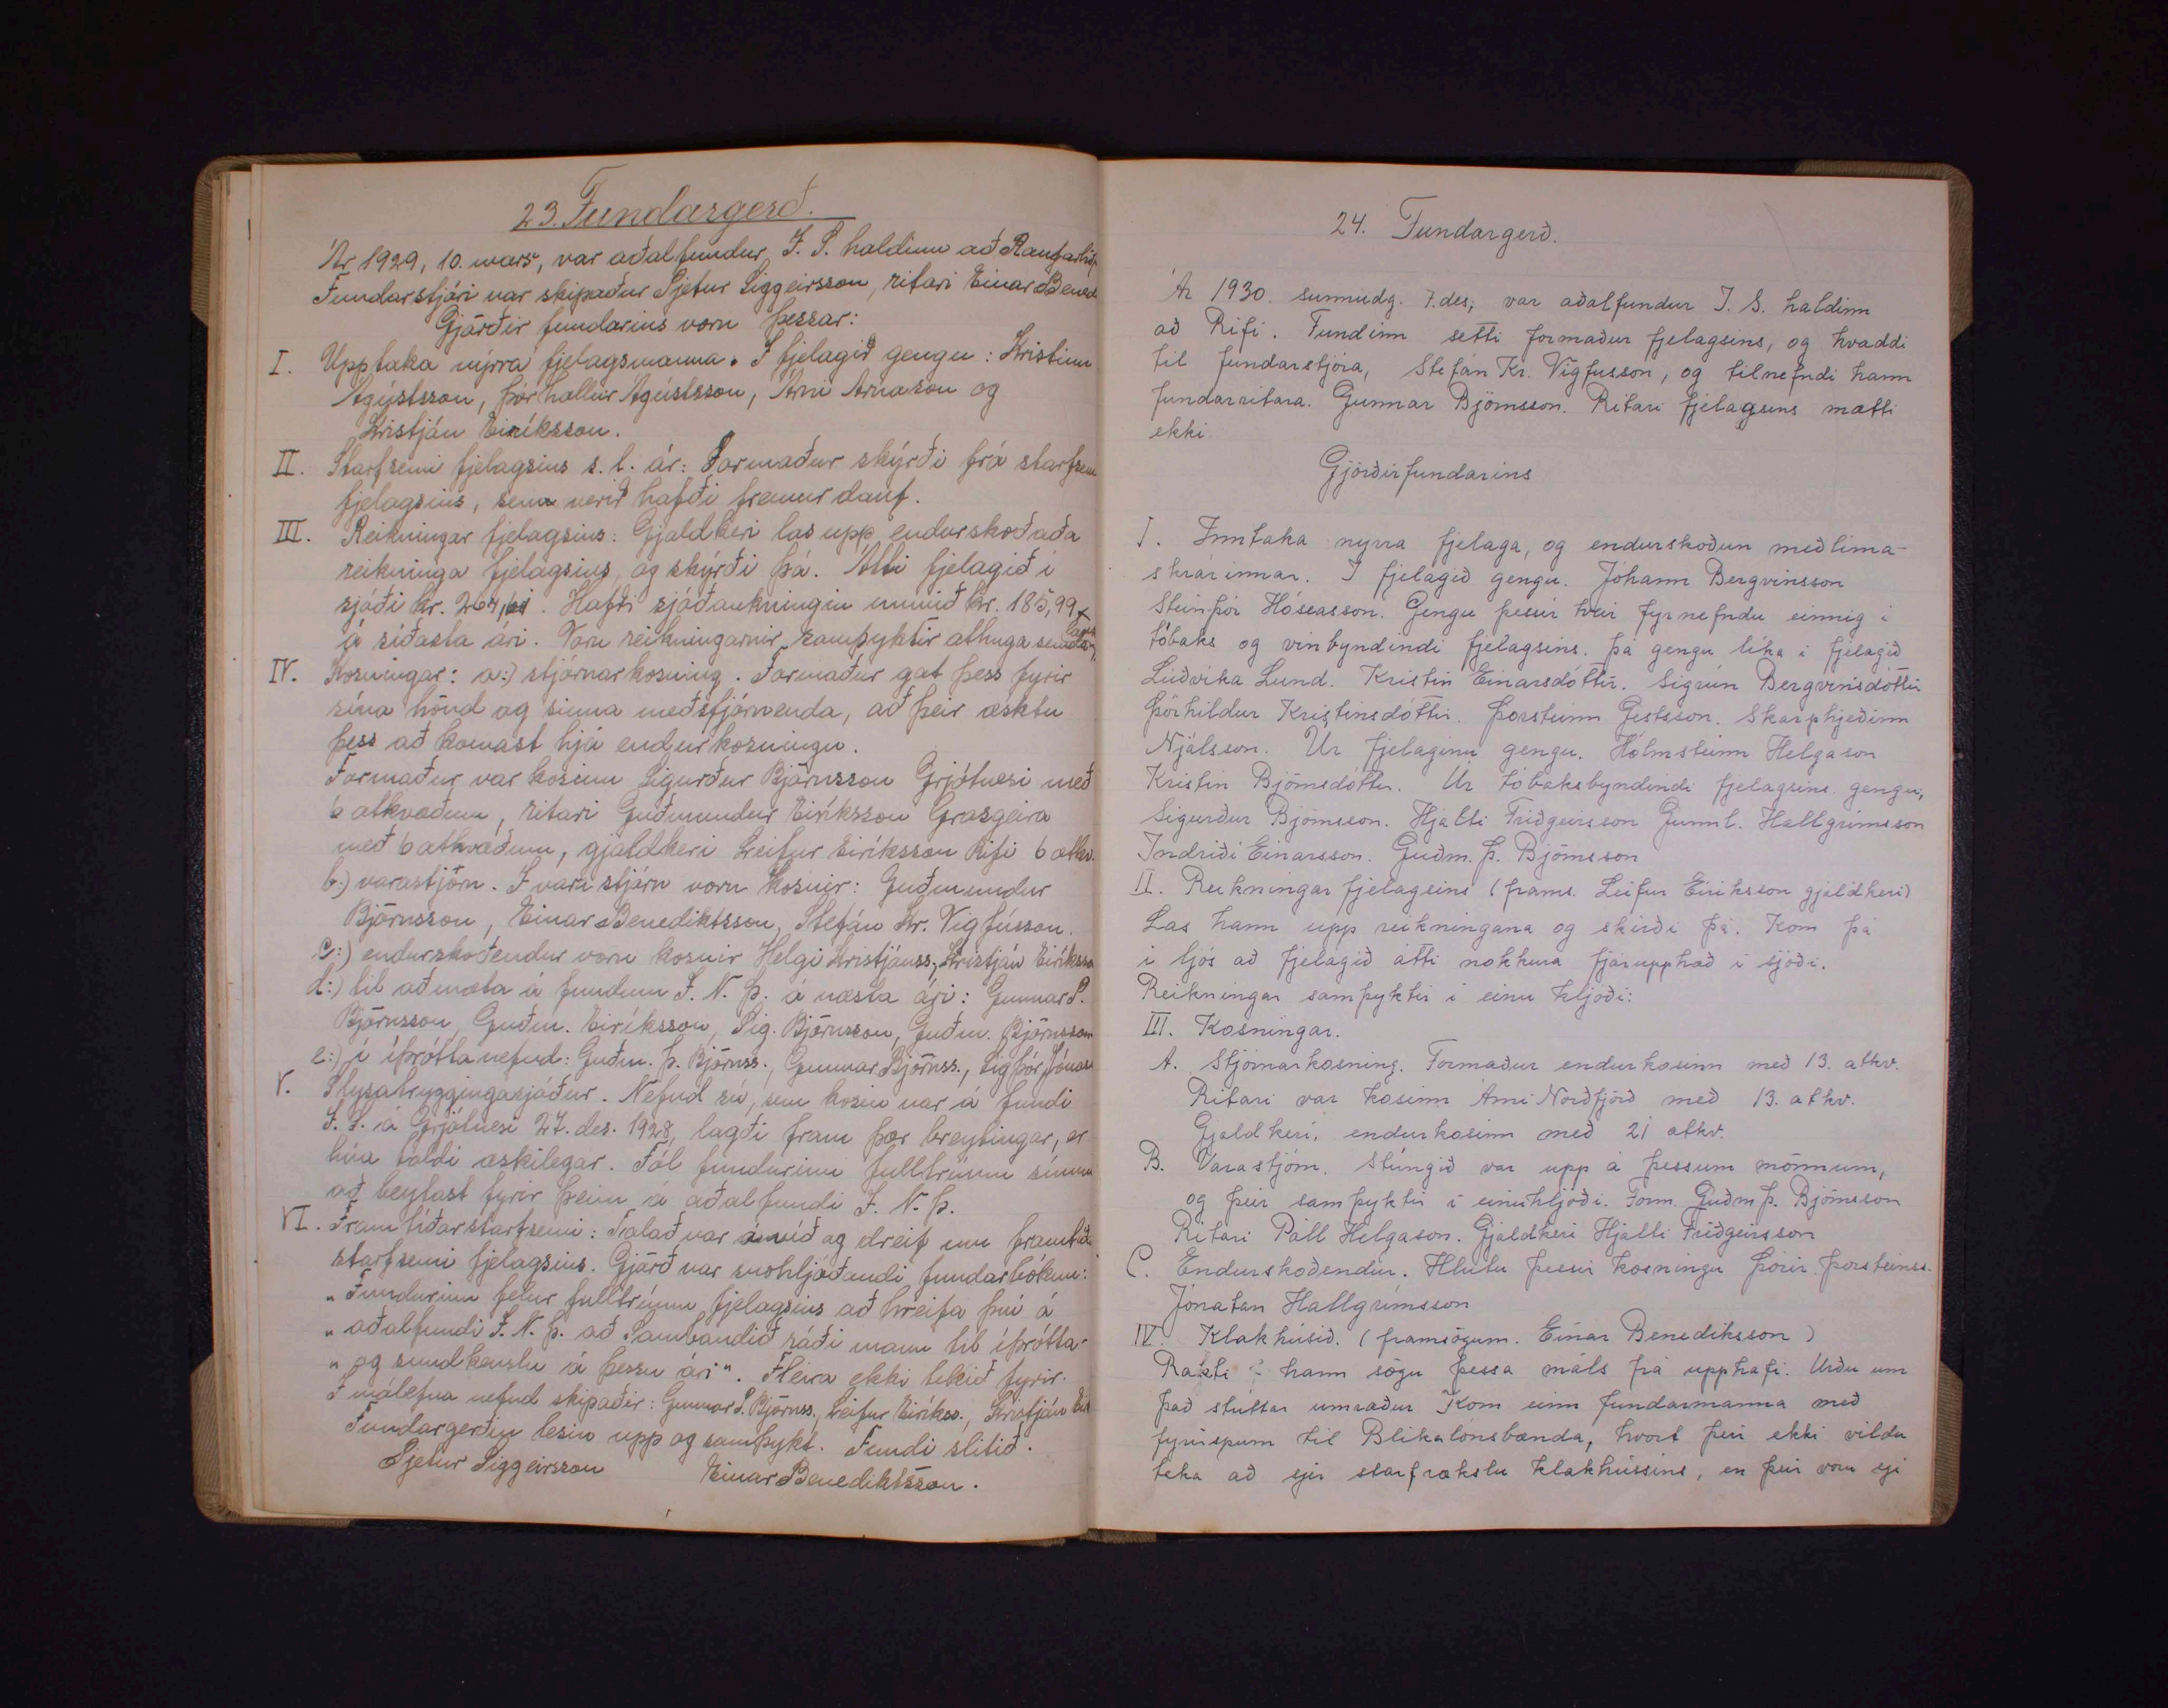 23. Fundargerð.
Ár 1929, 10. mars, var aðalfundur Í. S. haldinn að Raufarhöf
Fundarstjóri var skipaður Sjetur Siggeirsson, ritari Einar Bened
Gjörðir fundarins voru þessar:
I. Upptaka nýrra fjelagsmanna. Í fjelagið gengu: Kristinn
Ágústsson, Þórhallur Ágústsson, Árni Árnason og
Kristján Eiríksson.
II. Starfsemi fjelagsins s.l. ár: Formaður skýrði frá starfsem
fjelagsins, sem verið hafði fremur dauf.
III. Reikningar fjelagsins: Gjaldkeri las upp endurskoðaða
reikninga fjelagsins, og skýrði þá. Átti fjelagið í
sjóði kr. 264, . Hafði sjóðaukningin numið kr. 185,99
á síðasta ári. Voru reikningarnir samþyktir athuga
IV. Kosningar: a:) stjórnarkosning. Formaður gat þess fyrir
sína hönd og sinna meðstjórnenda, að þeir æsktu
þess að komast hjá endurkosningu.
Formaður var kosinn Sigurður Björnsson Grjótnesi með
6 atkvæðum, ritari Guðmundur Eiríksson Grasgeira
með 6 atkvæðum, gjaldkeri Leifur Eiríksson Rifi 6 atkv.
b:) varastjórn. Í varastjórn voru kosnir: Guðmundur
Björnsson, Einar Benediktsson, Stefán Kr. Vigfússon.
c:) endurskoðendur voru kosnir Helgi Kristjánss., Kristján Eiríksso
d:) til að mæta á fundum Í. N. Þ. á næsta ári: Gunnar S.
Björnsson, Guðm. Eiríksson, Sig. Björnsson, Guðm. Björnsson
e:) í íþróttanefnd: Guðm. Þ. Björnss., Gunnar Björnss., Sigþór Jónass
V. Slysatryggingasjóður. Nefnd sú, sem kosin var á fundi
Í. S. á Grjótnesi 27. des. 1928, lagði fram þær breytingar, er
hún taldi æskilegar. Fól fundurinn fulltrúum sínum
að beytast fyrir þeim á aðalfundi Í. N. Þ.
VI. Framtíðarstarfsemi: Talað var á víð og dreif um framtíða
starfsemi fjelagsins. Gjörð var svohljóðandi fundarbókun:
" Fundurinn felur fulltrúum fjelagsins að hreifa því á
" aðalfundi Í. N. Þ. að Sambandið ráði mann til íþrótta-
" og sundkenslu á þessu ári". Fleira ekki tekið fyrir.
Í málefna nefnd skipaðir: Gunnar S. Björnss., Leifur Eiríkss., Kristján Eir
Fundargerðin lesin upp og samþykt. Fundi slitið.
Sjetur Siggeirsson Einar Benediktsson.
24. Fundargerð.
Ár 1930. sunnudg. 7. des; var aðalfundur I. S. haldinn
að Rifi. Fundinn setti formaður fjelagsins, og hvaddi
til fundarstjóra, Stefán Kr. Vigfusson, og tilnefndi hann
fundarritara. Gunnar Björnsson. Ritari fjelagsins mætti
ekki.
Gjörðir fundarins
I. Inntaka nyrra fjelaga, og endurskoðun meðlima-
skrárinnar. I fjelagið gengu. Jóhann Bergvinsson
Steinþór Hóseasson. Gengu þessir tveir fyrnefndu einnig i
tóbaks og vinbyndindi fjelagsins. Þá gengu lika i fjelagið
Luðvika Lund. Kristin Einarsdóttir. Sigrún Bergvinsdóttir
Þórhildur Kristinsdóttir. Þorsteinn Gestsson. Skarphjeðinn
Njálsson. Úr fjelaginu gengu. Hólmsteinn Helgason
Kristin Björnsdóttir. Úr tóbaksbyndindi fjelagsins gengu,
Sigurður Björnsson. Hjalti Friðgeirsson Gunnl. Hallgrimsson
Indriði Einarsson. Guðm. Þ. Björnsson
II. Reikningar fjelagsins (frams. Leifur Eiriksson gjaldkeri)
Las hann upp reikningana og skirði þá. Kom þá
i ljós að fjelagið átti nokkura fjárupphæð i sjóði.
Reikningar samþyktir i einu hljóði:
III. Kosningar.
A. Stjórnarkosning. Formaður endurkosinn með 13. atkv.
Ritari var kosinn Árni Norðfjörð með 13. atkv.
Gjaldkeri, endurkosinn með 21 atkv.
B. Varastjórn. Stúngið var upp á þessum mönnum,
og þeir samþyktir i einuhljóði. Form. Guðm Þ. Björnsson
Ritari Páll Helgason. Gjaldkeri Hjalti Friðgeirsson
C. Endurskoðendur. Hlutu þessir kosningu Þórir Þorsteinss.
Jónatan Hallgrímsson
IV. Klakhúsið. (framsögum. Einar Benediksson)
Rakti hann sögu þessa máls frá upphafi. Urðu um
það stuttar umræður Kom einn fundarmanna með
fyrirspurn til Blikalónsbænda, hvort þeir ekki vildu
taka að sjer starfrækslu klakhússins, en þeir voru eji